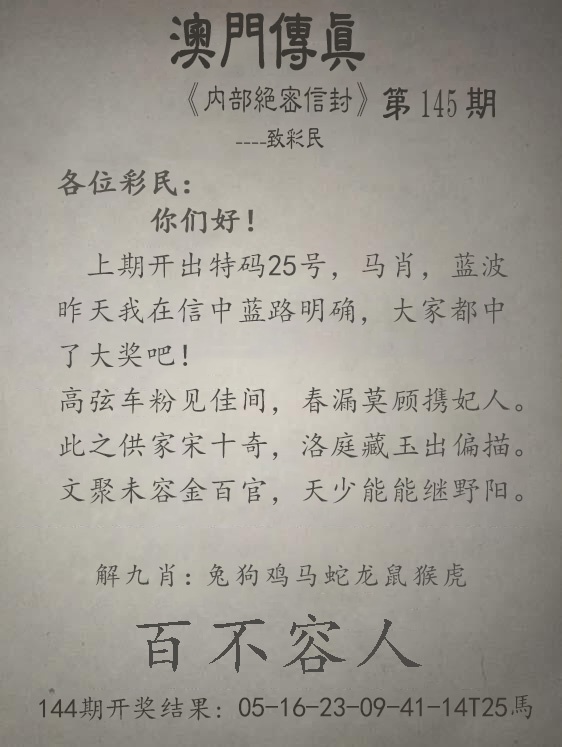 澳門傳眞
《内部絕密信封》第145期
----致彩民
各位彩民：
你们好！
上期开出特码25号，马肖，蓝波
昨天我在信中蓝路明确，大家都中
了大奖吧！
高弦车粉见佳间，春漏莫顾携妃人。
此之供家宋十奇，洛庭藏玉出偏描。
文聚未容金百官，天少能能继野阳。
解九肖：兔狗鸡马蛇龙鼠猴虎
百不容人
144期开奖结果：05-16-23-09-41-14T25馬